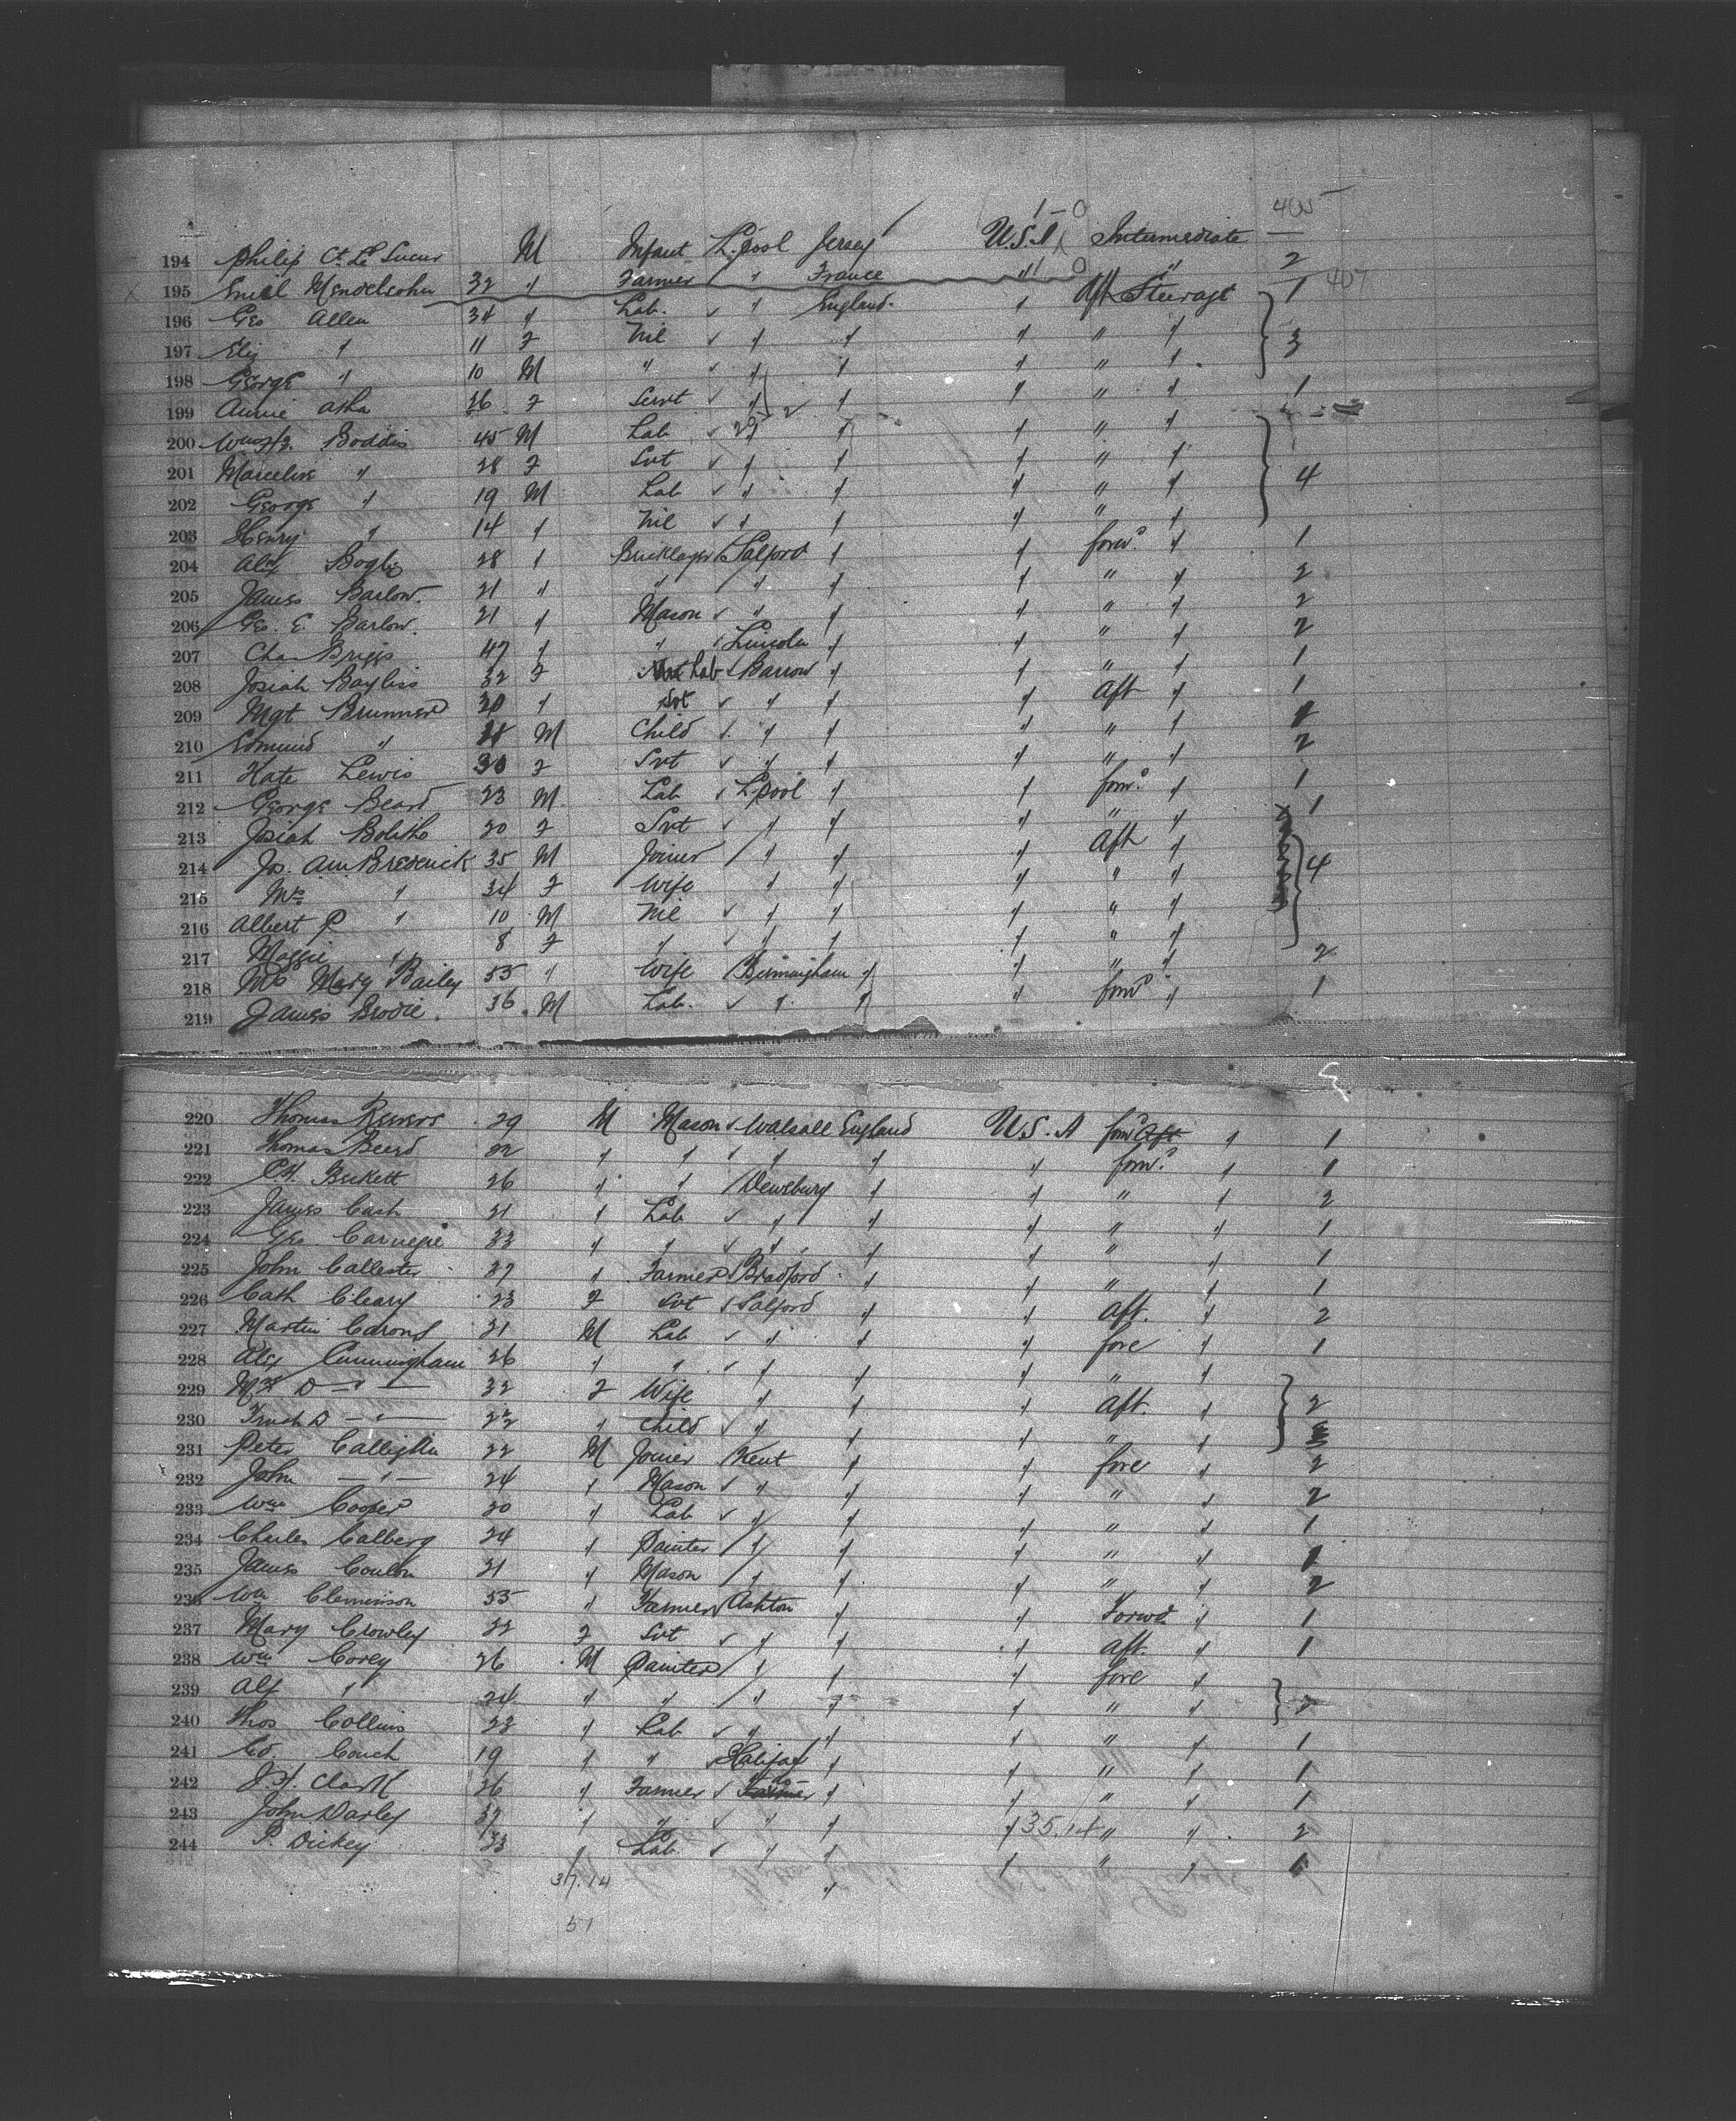 1 - 0 405
194 Philip Ct. Le Sueur M Infant L.pool Jersey U.S.A Intermediate —
195 Emil Mendelsohn 32 " Farmer " France " 0 " 2
196 Geo Allen 34 " Lab. ✓ " England " Aft Steerage 1 407
197 Eliz " 11 F Nil ✓ " " " " " 3
198 George " 10 M " ✓ " " " " "
199 Annie Asha 26 F Servt ✓ " 2 " " " " 1
200 Boddis 45 M Lab ✓ " " " " "
201 Marceline " 28 F Svt ✓ " " " " "
202 George " 19 M Lab ✓ " " " " " 4
203 Henry " 14 " Nil ✓ " " " " "
204 Alex 28 " Bricklayer Salford " " forwd. " 1
205 James Barlow. 21 " " " " " " " 2
206 Geo. E. Barlow. 21 " Mason ✓ " " " " " 2
207 Chas Briggs 47 " " Lincoln " " " " 2
208 Josiah Bayliss 32 F Lab ✓ Barrow " " " " 1
209 Mgt Brunner " Svt ✓ " " " Aft " 1
210 Edmund " M Child ✓ " " " " "
211 Kate Lewis 30 F Svt ✓ " " " " " 2
212 George Beard 23 M Lab ✓ L.pool " " forwd. " 1
213 Josiah Bolitho 20 F Svt ✓ " " " " " 1
214 Jos. 35 M Joiner / " " " Aft "
215 Mrs " 34 F Wife " " " " " 4
216 Albert P " 10 M Nil ✓ " " " " "
217 Maggie " 8 F " ✓ " " " " "
218 Mrs Mary Bailey 55 " Wife Birmingham " " " " 2
219 James Brodie. 36 M Lab. ✓ " " " forwd " 1
220 Thomas 29 M Mason ✓ Walsall England U.S.A forwd Aft " 1
221 Thomas Beard 22 " " ✓ " " " forwd. " 1
222 Beckett 26 " " / Dewsbury " " " " 2
223 James Cash 21 " Lab ✓ " " " " " 1
224 Geo Carnegie 33 " " ✓ " " " " " 1
225 John Callester 37 " Farmer Bradford " " " " 1
226 Cath Cleary 23 F Svt ✓ Salford " " Aft. " 2
227 Martin 21 M Lab ✓ " " " fore " 1
228 Alex Cunningham 26 " " ✓ " " " " "
229 Mrs D — " — 32 F Wife " " " Aft. " 2
230 D — " — " Child ✓ " " " " "
231 Peter 22 M Joiner / Kent " " fore " 2
232 John — " — 24 " Mason ✓ " " " " " 2
233 Wm Cooper 20 " Lab ✓ " " " " " 1
234 Charles Calberg 24 " Painter / " " " " " 1
235 James Conlon 21 " Mason / " " " " " 2
236 Wm Cleminson 55 " Farmer Ashton " " Forwd. " 1
237 Mary Crowley 22 F Svt ✓ " " " aft. " 1
238 Wm Corey 26 M Painter / " " " fore "
239 Alf " 24 " " / " " " " " 2
240 Thos Collins 23 " Lab ✓ " " " " " 1
241 Ed. Couch 19 " " Halifax " " " " 1
242 J.H. Clark 26 " Farmer ✓ Farmer do " " " " 1
243 John Darley 37 " " ✓ " " " 35.14 " " 2
244 P. Dickey 33 " Lab ✓ " " " " " 1
37.14
51